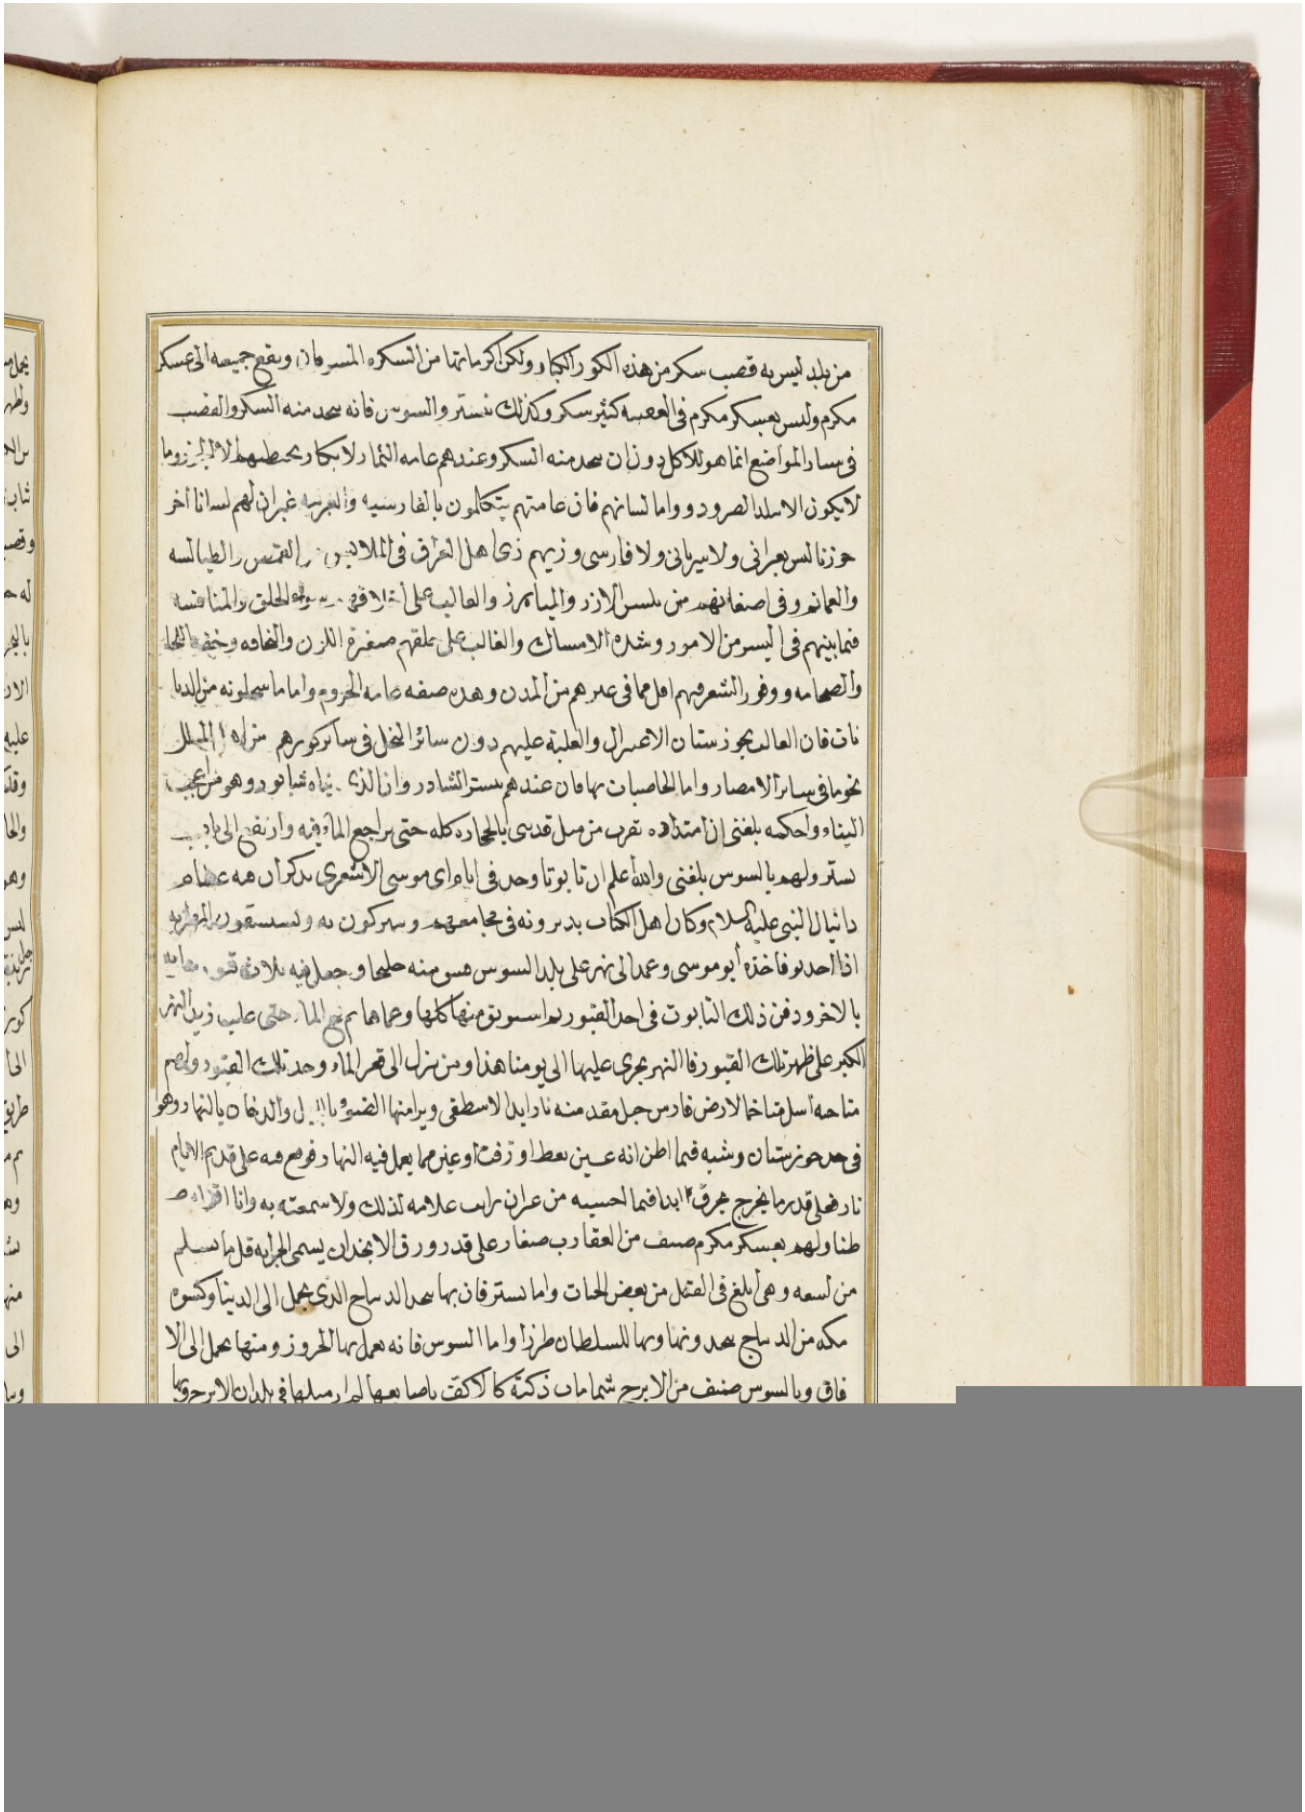 من بلد ليس به قصب سكر من هذه الكور الكبار ولكن اكرماتها من السكره المسرقان ويقع جميعه الى عسكر
مكرم وليس بعسكر مكرم فى القصبه كثير سكر وكذلك تستر والسوس فانه يتخذ منه السكر والقصب
فى ساير المواضع انما هو للاكل دون ان يتخذ منه السكر وعندهم عامه الثمار لا يكاد يخطيهم الا الجوز وما
لا يكون الا ببلد الصرود واما لسانهم فان عامتهم يتكلمون بالفارسيه والعربيه غير ان لهم لسانا اخر
خوزيا ليس بعبرانى ولا سريانى ولا فارسى وزيهم زى اهل العراق فى الملابس من القمص والطيالسه
والعمائم وفى اضعافهم من يلبس الازر والميازر والغالب على اخلاقهم سوء الخلق والمنافسه
فيما بينهم فى اليسير من الامور وشده الامساك والغالب على خلقهم صفرة اللون والنحافه وخفه اللحا
والضخامه ووفور الشعر فيهم اقل مما فى غيرهم من المدن وهذه صفه عامه الجروم واما ما ينتحلونه من الديا
نات فان الغالب بخوزستان الاعتزال والغلبة عليهم دون سائر النحل فى سائر كورهم من اهل الملل
نحو ما فى سائر الامصار واما الخاصيات بها فان عندهم بتستر الشادروان الذى بناه شابور وهو من اعجب
البناء واحكمه بلغنى ان امتداده يقرب من ميل قد بنى بالحجاره كله حتى تراجع الماء فيه وارتفع الى باب
تستر ولهم بالسوس بلغنى والله اعلم ان تابوتا وجد فى ايام ابى موسى الاشعرى يذكر ان فيه عظام
دانيال النبى عليه السلام وكان اهل الكتاب يديرونه فى مجامعهم ويتبركون به ويستسقون المطر به
اذا اجدبوا فاخذه أبو موسى وعمد الى نهر على بلد السوس فشق منه خليجا وجعل فيه ثلاث قبور مطويه
بالاجر ودفن ذلك التابوت فى احد القبور ثم استوثق منها كلها وعماها ثم فتح الماء حتى غلب زبد النهر
الكبير على ظهر تلك القبور فالنهر يجرى عليها الى يومنا هذا ومن نزل الى قعر الماء وجد تلك القبور ولهم
بناحيه اسل متاخما لارض فارس جبل يتقد منه نار ابدا لا تطفى ويرا منها الضوء بالليل والدخان بالنهار وهو
فى حد خوزستان وشبه فيما اظن انه عين نفط او زفت او غيره مما يعمل فيه النهار فوقع فيه على قديم الايام
نار فعلى قدر ما يخرج يحترق ابدا فيما احسبه من غير ان رايت علامه لذلك ولا سمعته به وانا اقراه
ظنا ولهم بعسكر مكرم صنف من العقارب صغار على قدر ورق الانجدان يسمى الجراره قل ما يسلم
من لسعه وهى ابلغ فى القتل من بعض الحيات واما تستر فان بها يتخذ الديباج الذى يحمل الى الدينا وكسوه
مكه من الديباج يتخذونها وبها للسلطان طرزا واما السوس فانه يعمل بها الخزوز ومنها يحمل الى الا
فاق وبالسوس صنف من الاترج شمامات ذكية كالاكف باصابعها لم ار مثلها فى بلدان الاترج وبها